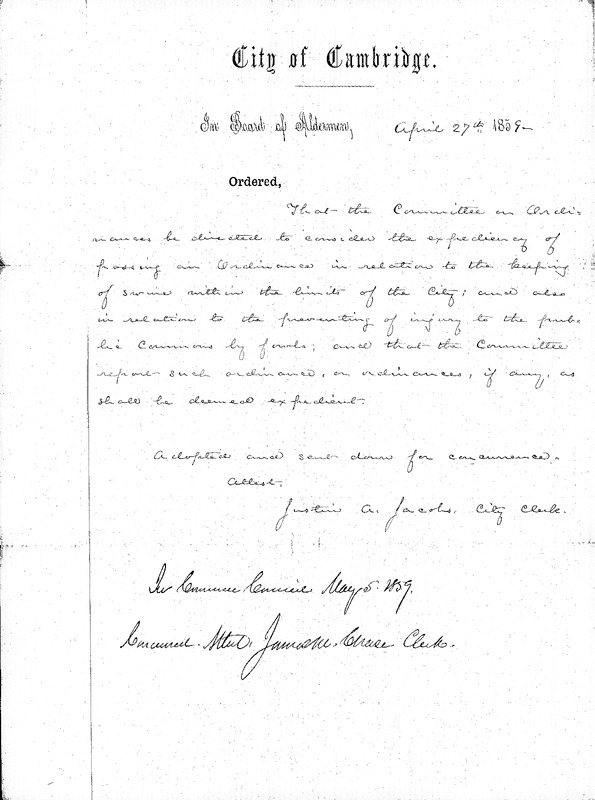 City of Cambridge.
In Board of Aldermen, April 27th 1859-
Ordered,
That the Committee on Ordi-
nances be directed to consider the expediency of
passing an Ordinance in relation to the keeping
of swine within the limits of the City; and also
in relation to the preventing of injury to the pub-
lic Commons by fowls; and that the Committee
report such ordinance, or ordinances, if any, as
shall be deemed expedient.
Adopted and sent down for concurrence.
Attest.
Justin A. Jacobs. City Clerk.
In Common Council May 5. 1859.
Concurred. Attest. James M. Chase Clerk.